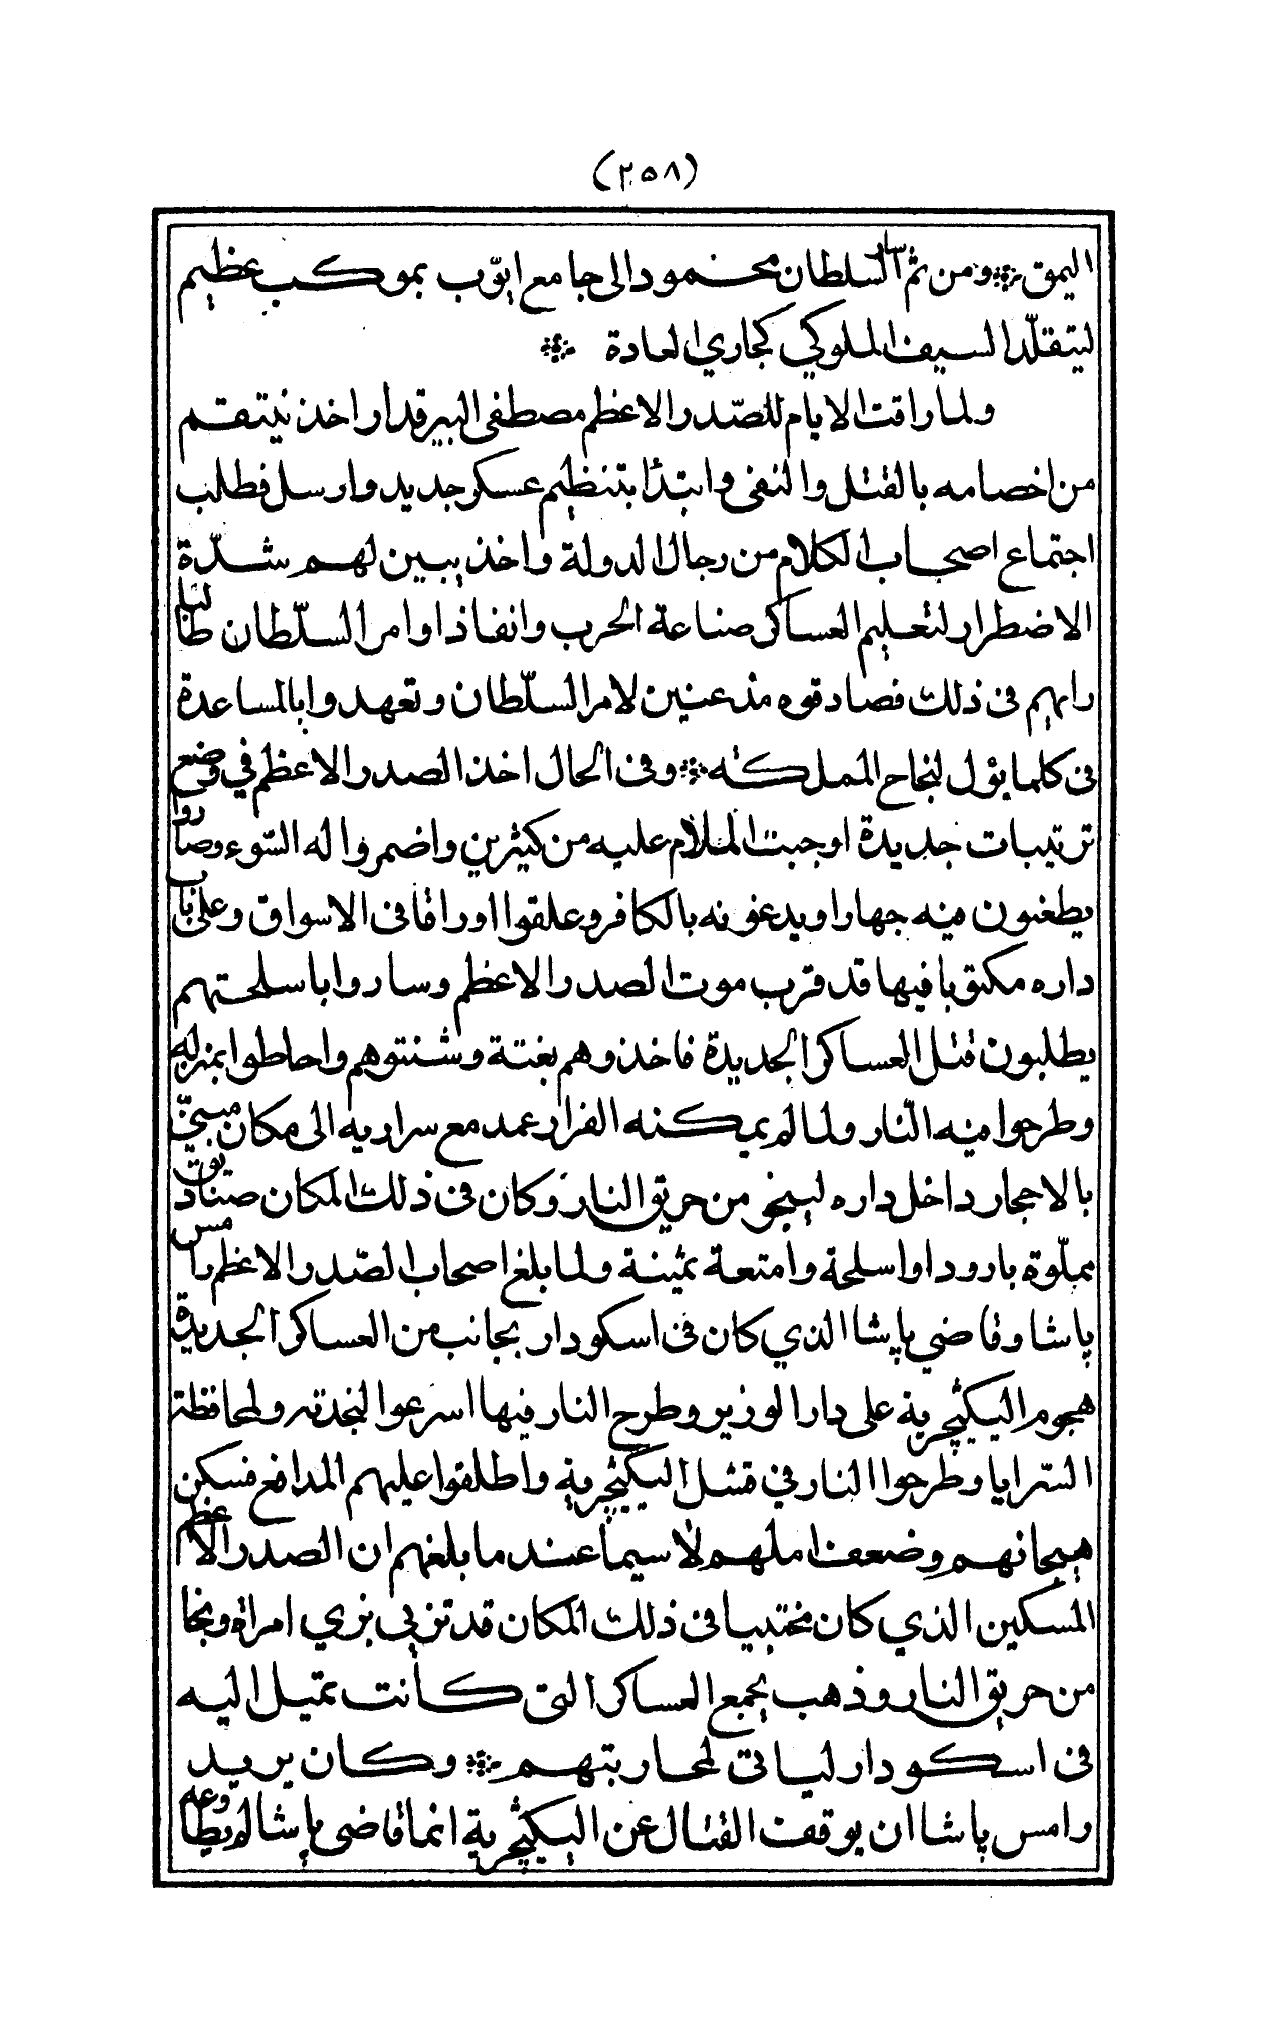 (٢٥٨)
اليمق ⁘ ومن ثم سار السلطان محمود الى جامع ايّوب بموكب عظيم
ليتقلّد السيف الملوكي كجاري العادة ⁘
ولما راقت الايام للصّدر الاعظم مصطفى البيرقدار اخذ ينتقم
من اخصامه بالقتل والنفى وابتدأ بتنظيم عسكر جديد وارسل فطلب
اجتماع اصحاب الكلام من رجال الدولة واخذ يبين لهم شدّة
الاضطرار لتعليم العساكر صناعة الحرب وانفاذ اوامر السلّطان طالبا
رايهم فى ذلك فصادقوه مذعنين لامر السلّطان وتعهدوا بالمساعدة
فى كلما يؤل لنجاح المملكته ⁘ وفى الحال اخذ الصدر الاعظم في وضع
ترتيبات جديدة اوجبت الملام عليه من كثيرين واضمروا له السّوء وصاروا
يطعنون فيه جهارا ويدعونه بالكافر وعلقوا اوراقا فى الاسواق وعلى باب
داره مكتوبا فيها قد قرب موت الصدر الاعظم وساروا باسلحتهم
يطلبون قتل العساكر الجديدة فاخذوهم بغتة وشنتوهم واحاطوا بمنزله
وطرحوا فيه النّار ولما لم يمكنه الفرار عمد مع سراريه الى مكان مبنيّ
بالاحجار داخل داره لينجو من حريق النار وكان فى ذلك المكان صناديق
مملّوة بارودا واسلحة وامتعة ثمينة ولما بلغ اصحاب الصّدر الاعظم رامس
پاشا وقاضي پاشا الذي كان فى اسكودار بجانب من العساكر الجديدة
هجوم اليكيچرية على دار الوزير وطرح النار فيها اسرعوا لنجدته ولمحافظة
السّرايا وطرحوا النار في قشل اليكيچرية واطلقوا عليهم المدافع فسكن
هيجانهم وضعف املهم لاسيما عند ما بلغهم ان الصدر الاعظم
المسكين الذي كان مختبيا فى ذلك المكان قد تزيي بزي امراة ونجا
من حريق النار وذهب يجمع العساكر التى كانت تميل اليه
فى اسكودار لياتى لمحاربتهم ⁘ وكان يريد
رامس پاشا ان يوقف القتال عن اليكيچرية انما قاضى پاشا لم يطاوعه